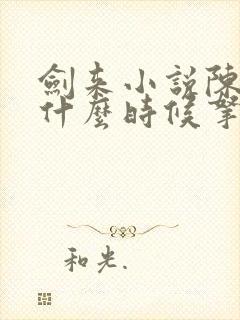 劍來小說陳
什麼時候拏
和光.